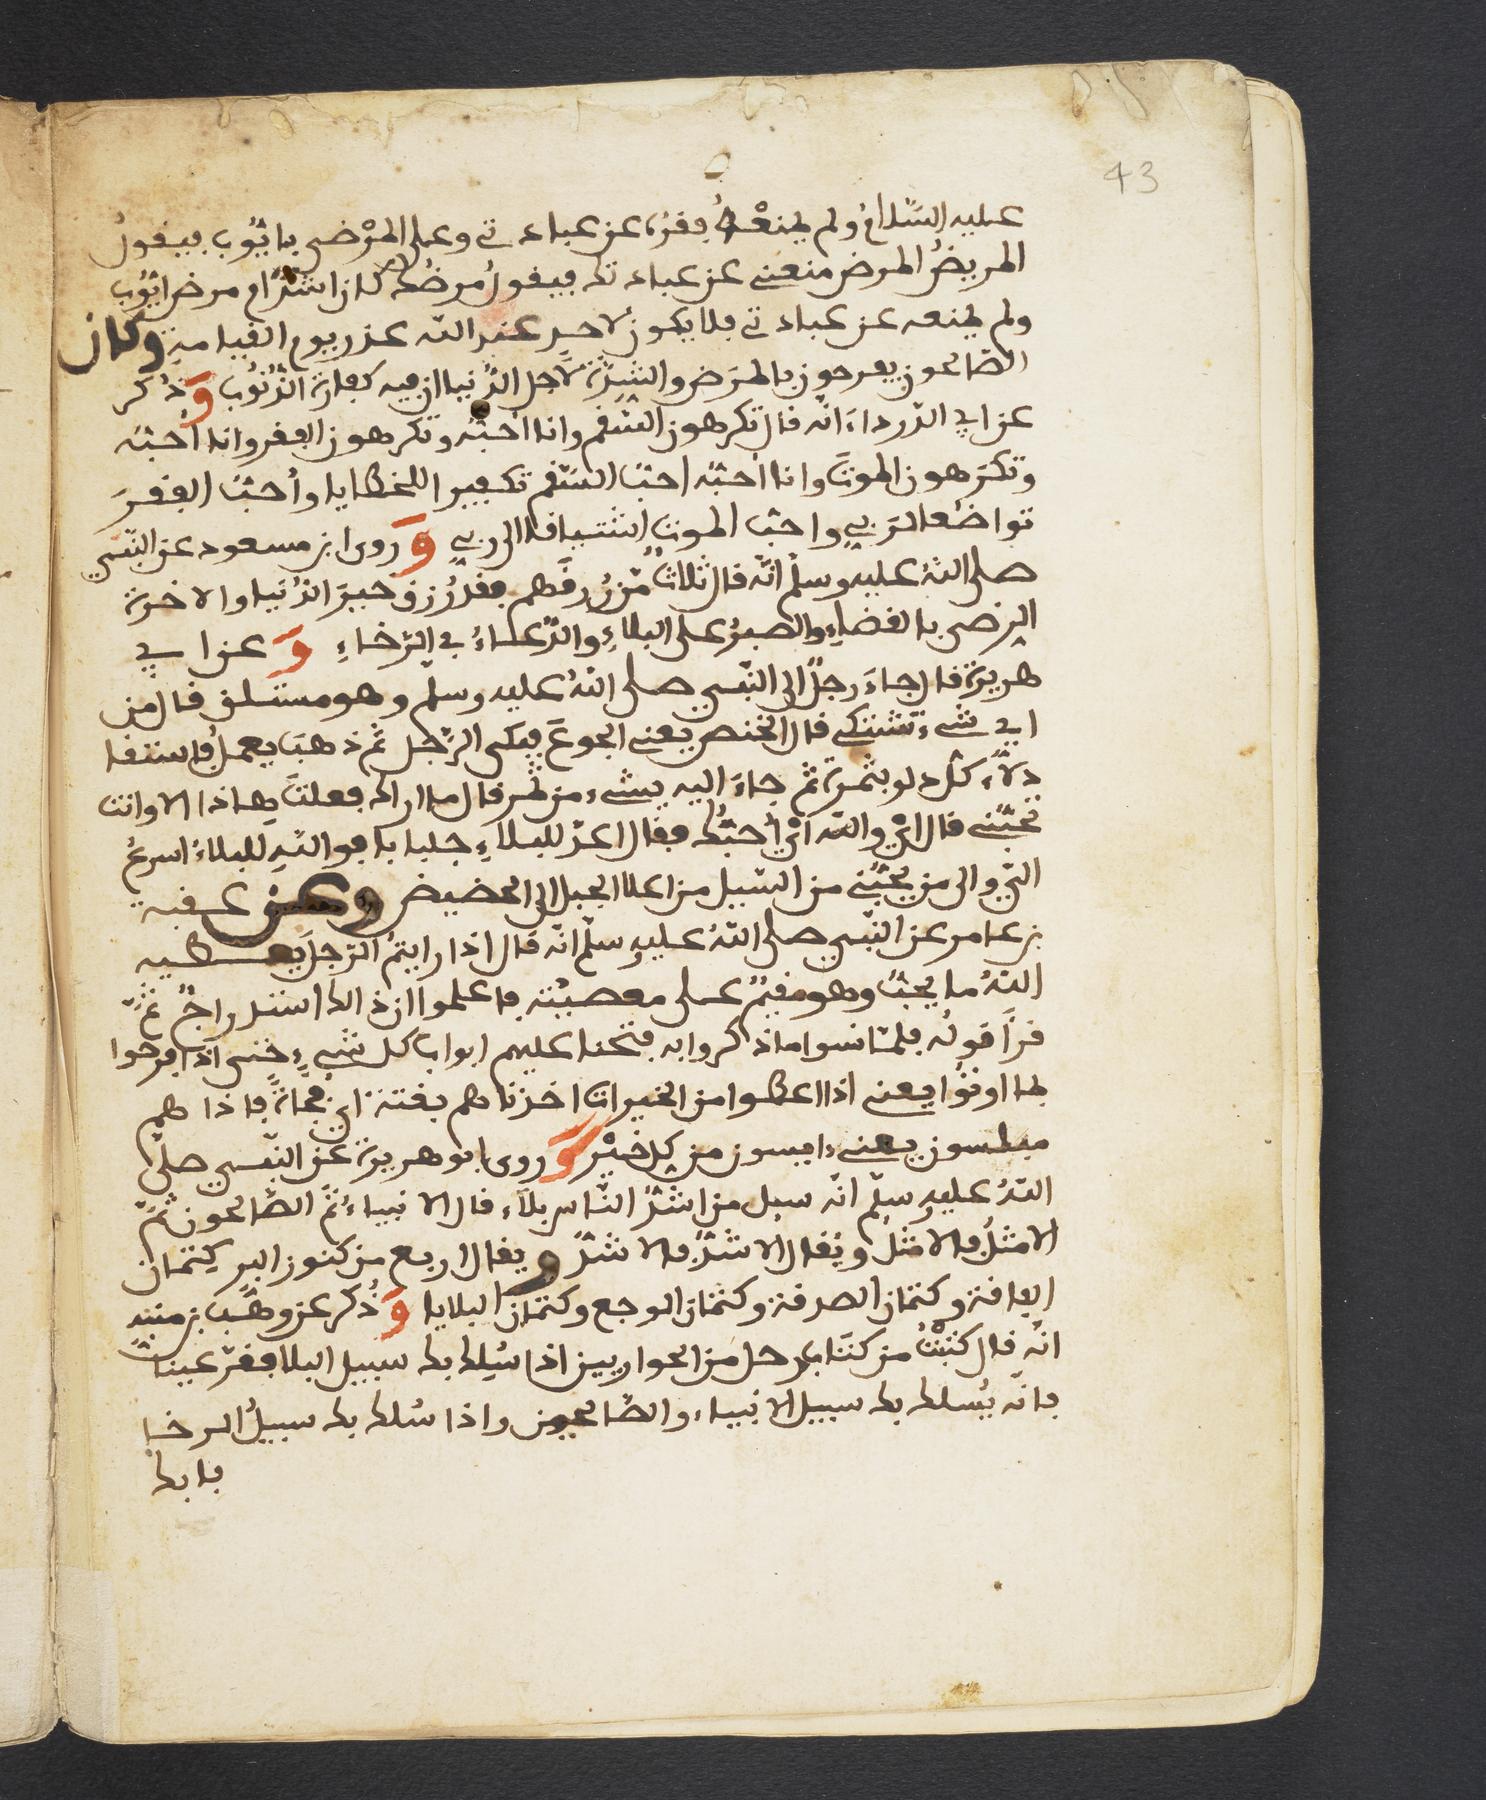 43
عليه السلام ولم يمنعه فقره عن عبادتي وعلى المرضى بايوب فيقول
المريض المرض منعني عن عبادتك فيقول مرضك كان اشد ام مرض ايوب
ولم يمنعه عن عبادتي فلا يكون لاحد عند الله عذر يوم القيامة وكان
الصالحون يفرحون بالمرض والشدة لاجل الدنيا ان فيه كفارة الذنوب وذكر
عن ابي الدرداء انه قال تكرهون السقم وانا احبه وتكرهون الفقر وانا احبه
وتكرهون الموت وانا احبه احب السقم تكفيرا للخطايا واحب الفقر
تواضعا لربي واحب الموت اشتياقا الى ربي وروى ابن مسعود عن النبي
صلى الله عليه وسلم انه قال ثلاث من رزقهم فقد رزق خير الدنيا والاخرة
الرضى بالقضاء والصبر على البلاء والدعاء في الرخاء وعن ابي
هريرة قال جاء رجل الى النبي صلى الله عليه وسلم وهو مستلق فقال من
اي شيء تشتكي قال الخمص يعني الجوع فبكى الرجل ثم ذهب يعمل فاستقا
دلاء كل دلو بتمرة ثم جاء اليه بشيء من تمر فقال ما اراك فعلت هاذا الا وانت
تحبني قال اي والله اني احبك فقال اعد للبلاء جلبابا فوالله للبلاء اسرع
الي والى من يحبني من السيل من اعلا الجبل الى الحضيض وعن عقبه
بن عامر عن النبي صلى الله عليه وسلم انه قال اذا رايتم الرجل يعطيه
الله ما يحب وهو مقيم على معصيته فاعلموا ان ذالك استدراج ثم
قرا قوله فلما نسوا ما ذكروا به فتحنا عليهم ابواب كل شيء حتى اذا فرحوا
بما اوتوا يعني اذا اعطوا من الخيرات اخذناهم بغتة اي فجاة فاذا هم
مبلسون يعني ءايسون من كل خير وروى ابو هريرة عن النبي صلى
الله عليه وسلم انه سيل من اشد الناس بلاء قال الانبياء ثم الصالحون ثم
الامثل فالامثل ويقال الاشد فالاشد ويقال اربع من كنوز البر كتمان
الفاقة وكتمان الصدقة وكتمان الوجع وكتمان البلايا وذكر عن وهب بن منبه
انه قال كتبت من كتاب رجل من الحواريين اذا سلك بك سبيل البلا فقر عينا
فانه يسلك بك سبيل الانبياء والصالحين واذا سلك بك سبيل الرخا
فابك